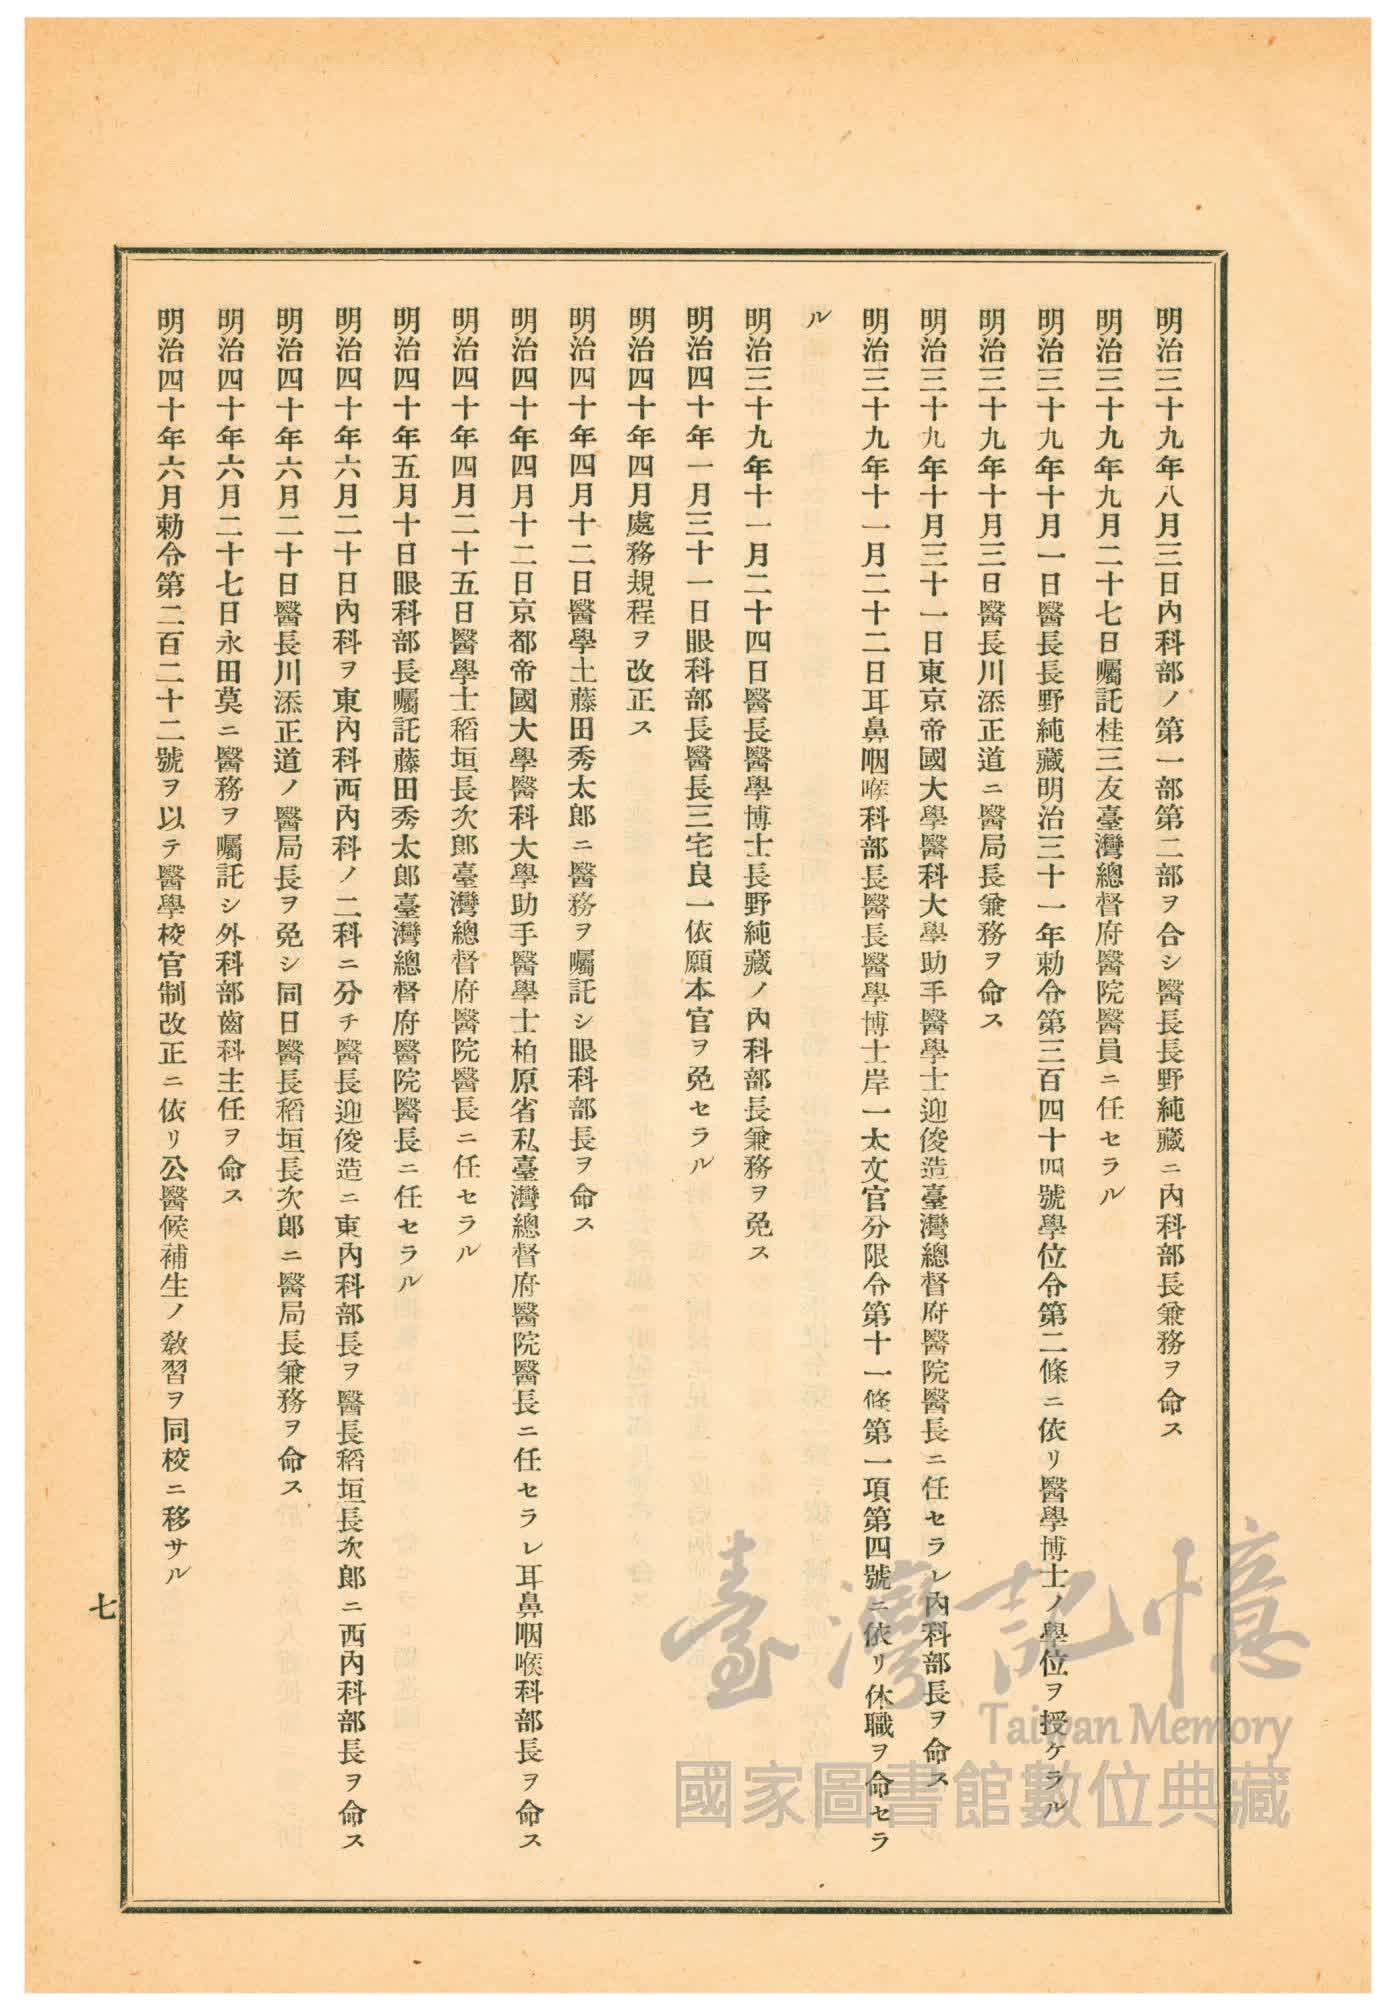 明治三十九年八月三日內科部ノ第一部第二部ヲ合シ醫長長野純藏ニ內科部長兼務ヲ命ス
明治三十九年九月二十七日囑託桂三友臺灣總督府醫院醫員ニ任セラル
明治三十九年十月一日醫長長野純藏明治三十一年勅令第三百四十四號學位令第二條ニ依リ醫學博士ノ學位ヲ授ケラル
明治三十九年十月三日醫長川添正道ニ醫局長兼務ヲ命ス
明治三十九年十月三十一日東京帝國大學醫科大學助手醫學士迎俊造臺灣總督府醫院醫長ニ任セラレ內科部長ヲ命ス
明治三十九年十一月二十二日耳鼻咽喉科部長醫長醫學博士岸一太文官分限令第十一條第一項第四號ニ依リ休職ヲ命セラ
ル
明治三十九年十一月二十四日醫長醫學博士長野純藏ノ內科部長兼務ヲ免ス
明治四十年一月三十一日眼科部長醫長三宅良一依願本官ヲ免セラル
明治四十年四月處務規程ヲ改正ス
明治四十年四月十二日醫學士藤田秀太郎ニ醫務ヲ囑託シ眼科部長ヲ命ス
明治四十年四月十二日京都帝國大學醫科大學助手醫學士柏原省私臺灣總督府醫院醫長ニ任セラレ耳鼻咽喉科部長ヲ命ス
明治四十年四月二十五日醫學士稻垣長次郎臺灣總督府醫院醫長ニ任セラル
明治四十年五月十日眼科部長囑託藤田秀太郎臺灣總督府醫院醫長ニ任セラル
明治四十年六月二十日內科ヲ東內科西內科ノ二科ニ分チ醫長迎俊造ニ東內科部長ヲ醫長稻垣長次郎ニ西內科部長ヲ命ス
明治四十年六月二十日醫長川添正道ノ醫局長ヲ免シ同日醫長稻垣長次郎ニ醫局長兼務ヲ命ス
明治四十年六月二十七日永田莫ニ醫務ヲ囑託シ外科部齒科主任ヲ命ス
明治四十年六月勅令第二百二十二號ヲ以テ醫學校官制改正ニ依リ公醫候補生ノ敎習ヲ同校ニ移サル
七
臺灣記憶
Taiwan Memory
國家圖書館數位典藏